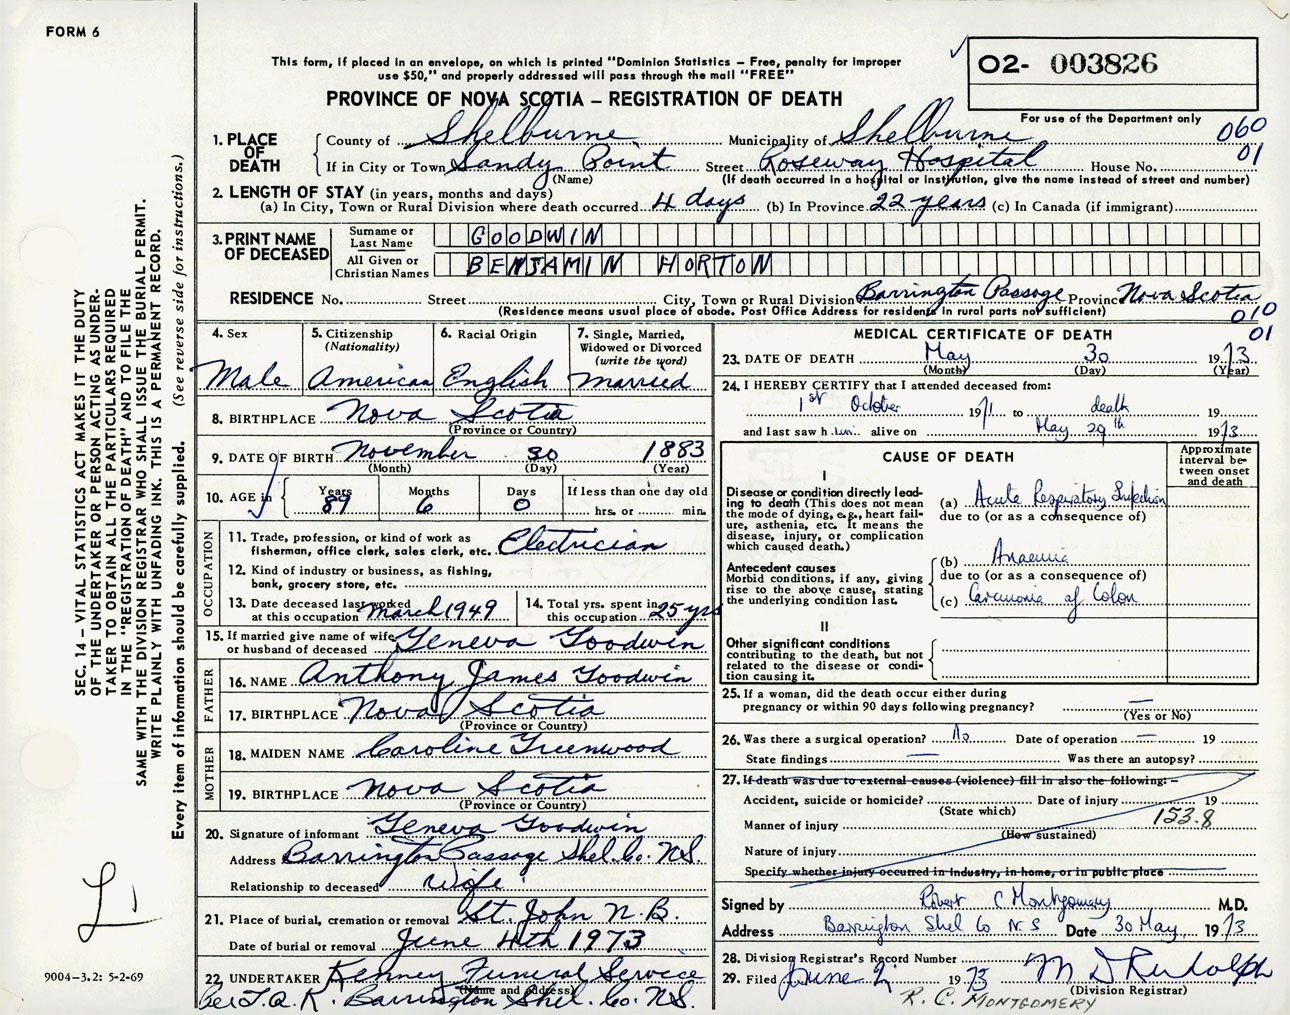 FORM 6
This form, if placed in an envelope, on which is printed "Dominion Statistics – Free, penalty for improper
use $50," and properly addressed will pass through the mail "FREE"
O2- 003826
PROVINCE OF NOVA SCOTIA – REGISTRATION OF DEATH
For use of the Department only
060
01
1. PLACE OF DEATH County of Shelburne Municipality of Shelburne
If in City or Town Sandy Point Street Roseway Hospital House No.
(Name) (If death occurred in a hospital or institution, give the name instead of street and number)
2. LENGTH OF STAY (in years, months and days)
(a) In City, Town or Rural Division where death occurred 4 days (b) In Province 22 years (c) In Canada (if immigrant)
3. PRINT NAME OF DECEASED Surname or Last Name GOODWIN
All Given or Christian Names BENJAMIN HORTON
RESIDENCE No. Street City, Town or Rural Division Barrington Passage Province Nova Scotia
(Residence means usual place of abode. Post Office Address for residents in rural parts not sufficient)
010
01
4. Sex 5. Citizenship (Nationality) 6. Racial Origin 7. Single, Married, Widowed or Divorced (write the word)
Male American English Married
8. BIRTHPLACE Nova Scotia
(Province or Country)
9. DATE OF BIRTH November 30 1883
(Month) (Day) (Year)
10. AGE in Years 89 Months 6 Days 0 If less than one day old hrs. or min.
OCCUPATION
11. Trade, profession, or kind of work as
fisherman, office clerk, sales clerk, etc. Electrician
12. Kind of industry or business, as fishing,
bank, grocery store, etc.
13. Date deceased last worked at this occupation March 1949 14. Total yrs. spent in this occupation 25 yrs
15. If married give name of wife or husband of deceased Geneva Goodwin
FATHER
16. NAME Anthony James Goodwin
17. BIRTHPLACE Nova Scotia
(Province or Country)
MOTHER
18. MAIDEN NAME Caroline Greenwood
19. BIRTHPLACE Nova Scotia
(Province or Country)
20. Signature of informant Geneva Goodwin
Address Barrington Passage Shel. Co. N.S.
Relationship to deceased Wife
21. Place of burial, cremation or removal St. John N.B.
Date of burial or removal June 4th 1973
22. UNDERTAKER Kenney Funeral Service
(Name and address)
per T.A.K. Barrington Shel. Co. N.S.
MEDICAL CERTIFICATE OF DEATH
23. DATE OF DEATH May 30 1973
(Month) (Day) (Year)
24. I HEREBY CERTIFY that I attended deceased from:
1st October 1971 to death 19
and last saw him alive on May 29th 1973
CAUSE OF DEATH
Approximate interval be-
tween onset
and death
I
Disease or condition directly lead-
ing to death (This does not mean
the mode of dying, e.g., heart fail-
ure, asthenia, etc. It means the
disease, injury, or complication
which caused death.)
(a) Acute Respiratory Infection
due to (or as a consequence of)
Antecedent causes
Morbid conditions, if any, giving
rise to the above cause, stating
the underlying condition last.
(b) Anaemia
due to (or as a consequence of)
(c) Carcinoma of Colon
II
Other significant conditions
contributing to the death, but not
related to the disease or condi-
tion causing it.
25. If a woman, did the death occur either during
pregnancy or within 90 days following pregnancy? —
(Yes or No)
26. Was there a surgical operation? No Date of operation — 19
State findings — Was there an autopsy?
27. If death was due to external causes (violence) fill in also the following: –
Accident, suicide or homicide? Date of injury 19
(State which)
Manner of injury 153.8
(How sustained)
Nature of injury
Specify whether injury occurred in industry, in home, or in public place
Signed by Robert C Montgomery M.D.
Address Barrington Shel Co N.S Date 30 May 1973
28. Division Registrar's Record Number
29. Filed June 2, 1973 M D Rudolph
(Division Registrar)
R. C. MONTGOMERY
SEC. 14 – VITAL STATISTICS ACT MAKES IT THE DUTY
OF THE UNDERTAKER OR PERSON ACTING AS UNDER-
TAKER TO OBTAIN ALL THE PARTICULARS REQUIRED
IN THE "REGISTRATION OF DEATH" AND TO FILE THE
SAME WITH THE DIVISION REGISTRAR WHO SHALL ISSUE THE BURIAL PERMIT.
WRITE PLAINLY WITH UNFADING INK. THIS IS A PERMANENT RECORD.
Every item of information should be carefully supplied. (See reverse side for instructions.)
9004–3.2: 5-2-69